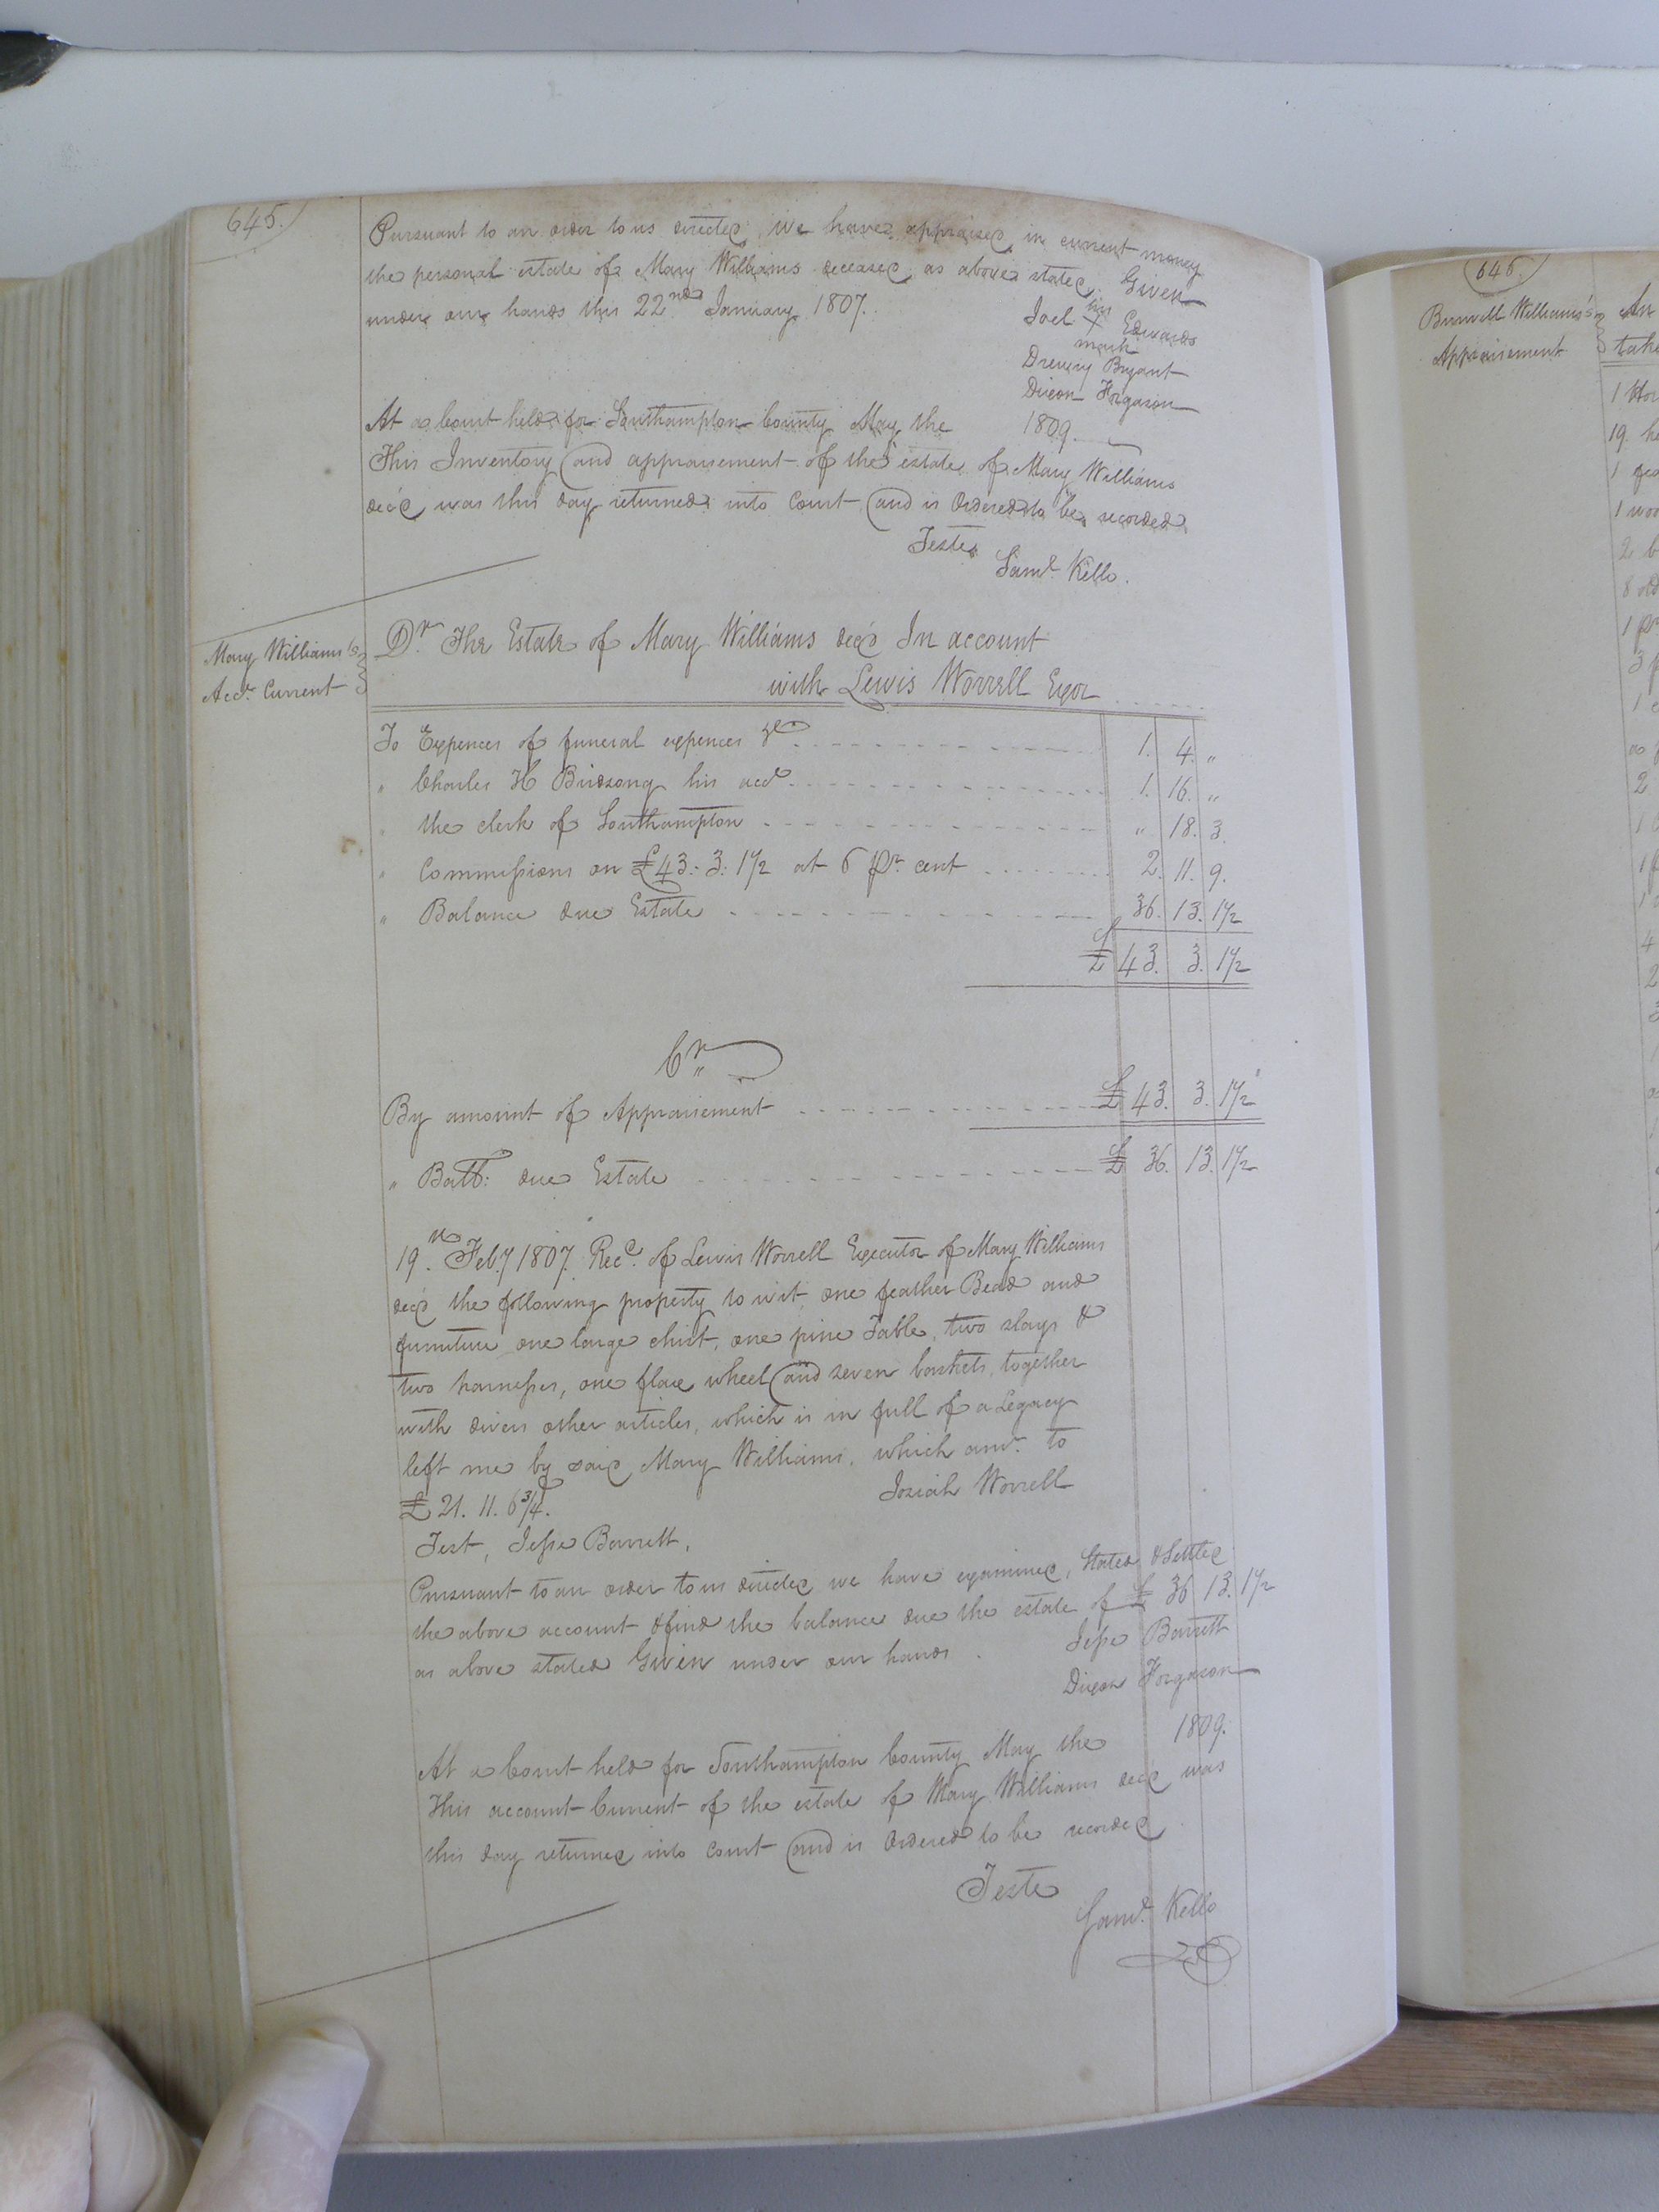 645.
Pursuant to an order to us directed, we have appraised in current money
the personal estate of Mary Williams deceased as above stated. Given
under our hands this 22nd January 1807.
Joel his X mark Edwards
Drewry Bryant
Dixon Forgason
At a Court held for Southampton County May the 1809.
This Inventory and appraisement of the estate of Mary Williams
dec'd was this day returned into Court and is Ordered to be recorded
Teste
Saml. Kello.
Mary Williams's
Acct. Current
Dr. The Estate of Mary Williams dec'd In account
with Lewis Worrell Exor
To Expences of funeral expences &c 1. 4. "
" Charles H Birdsong his acct 1. 16. "
" the clerk of Southampton " 18. 3.
" Commissions on £43. 3. 1½ at 6 pr. cent 2. 11. 9.
" Balance due Estate 36. 13. 1½
£ 43. 3. 1½
Cr.
By amount of Appraisement £ 43. 3. 1½
" Balle: due Estate £ 36. 13. 1½
19th. Feby 1807. Recd. of Lewis Worrell Executor of Mary Williams
dec'd the following property to wit, one feather Bead and
furniture one large chist, one pine Table, two slays &
two harnesses, one flax wheel and seven baskets, together
with divers other articles, which is in full of a Legacy
left me by said Mary Williams, which amt. to
£21. 11. 6¾.
Josiah Worrell
Test, Jesse Barrett,
Pursuant to an order to us directed we have examined, Stated & Settled
the above account & find the balance due the estate of £ 36 13. 1½
as above stated Given under our hands.
Jesse Barrett
Dixon Forgason
At a Court held for Southampton County May the 1809.
This account Current of the estate of Mary Williams dec'd was
this day returned into Court and is Ordered to be recorded
Teste
Saml. Kello
646.
Burwell Williams's
Appraisement
An
take
1 Hor
19. he
1
1 woo
2 b
8 old
1 pr
3
1
2
4
2
3